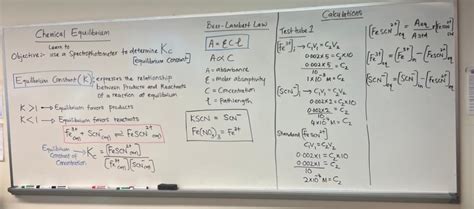 Chemical Equilibrium
Learn to
Objective:- Use a Spectrophotometer to determine Kc
[equilibrium constant]
Equilibrium Constant (K): expresses the relationship
between Products and Reactants
of a reaction at equilibrium
K>1 → Equilibrium favors products
K<1 → Equilibrium favors reactants
Fe³⁺(aq) + SCN⁻(aq) ⇌ FeSCN²⁺(aq)
Equilibrium
Constant of
Concentration
Kc = [FeSCN²⁺(aq)]
[Fe³⁺(aq)][SCN⁻(aq)]
Beer-Lambert Law
A = εCl
A∝C
A = absorbance
ε = Molar absorptivity
C = Concentration
l = pathlength
KSCN = SCN⁻
Fe(NO₃)₃ = Fe³⁺
Calculations
Test tube 1
[Fe³⁺]i → C₁V₁ = C₂V₂
0.002x5 = C₂x10
0.002x5 = C₂
10
1x10⁻³M = C₂
[SCN⁻]i → C₁V₁ = C₂V₂
0.002x2 = C₂x10
0.002x2 = C₂
10
4x10⁻⁴M = C₂
Standard [FeSCN²⁺]
C₁V₁ = C₂V₂
0.002x1 = C₂x10
0.002x1 = C₂
10
2x10⁻⁴M = C₂
[FeSCN²⁺]eq = Aeq
[Fe³⁺]eq = [Fe³⁺]i - [FeSCN²⁺]eq
[SCN⁻]eq = [SCN⁻]i - [FeSCN²⁺]eq